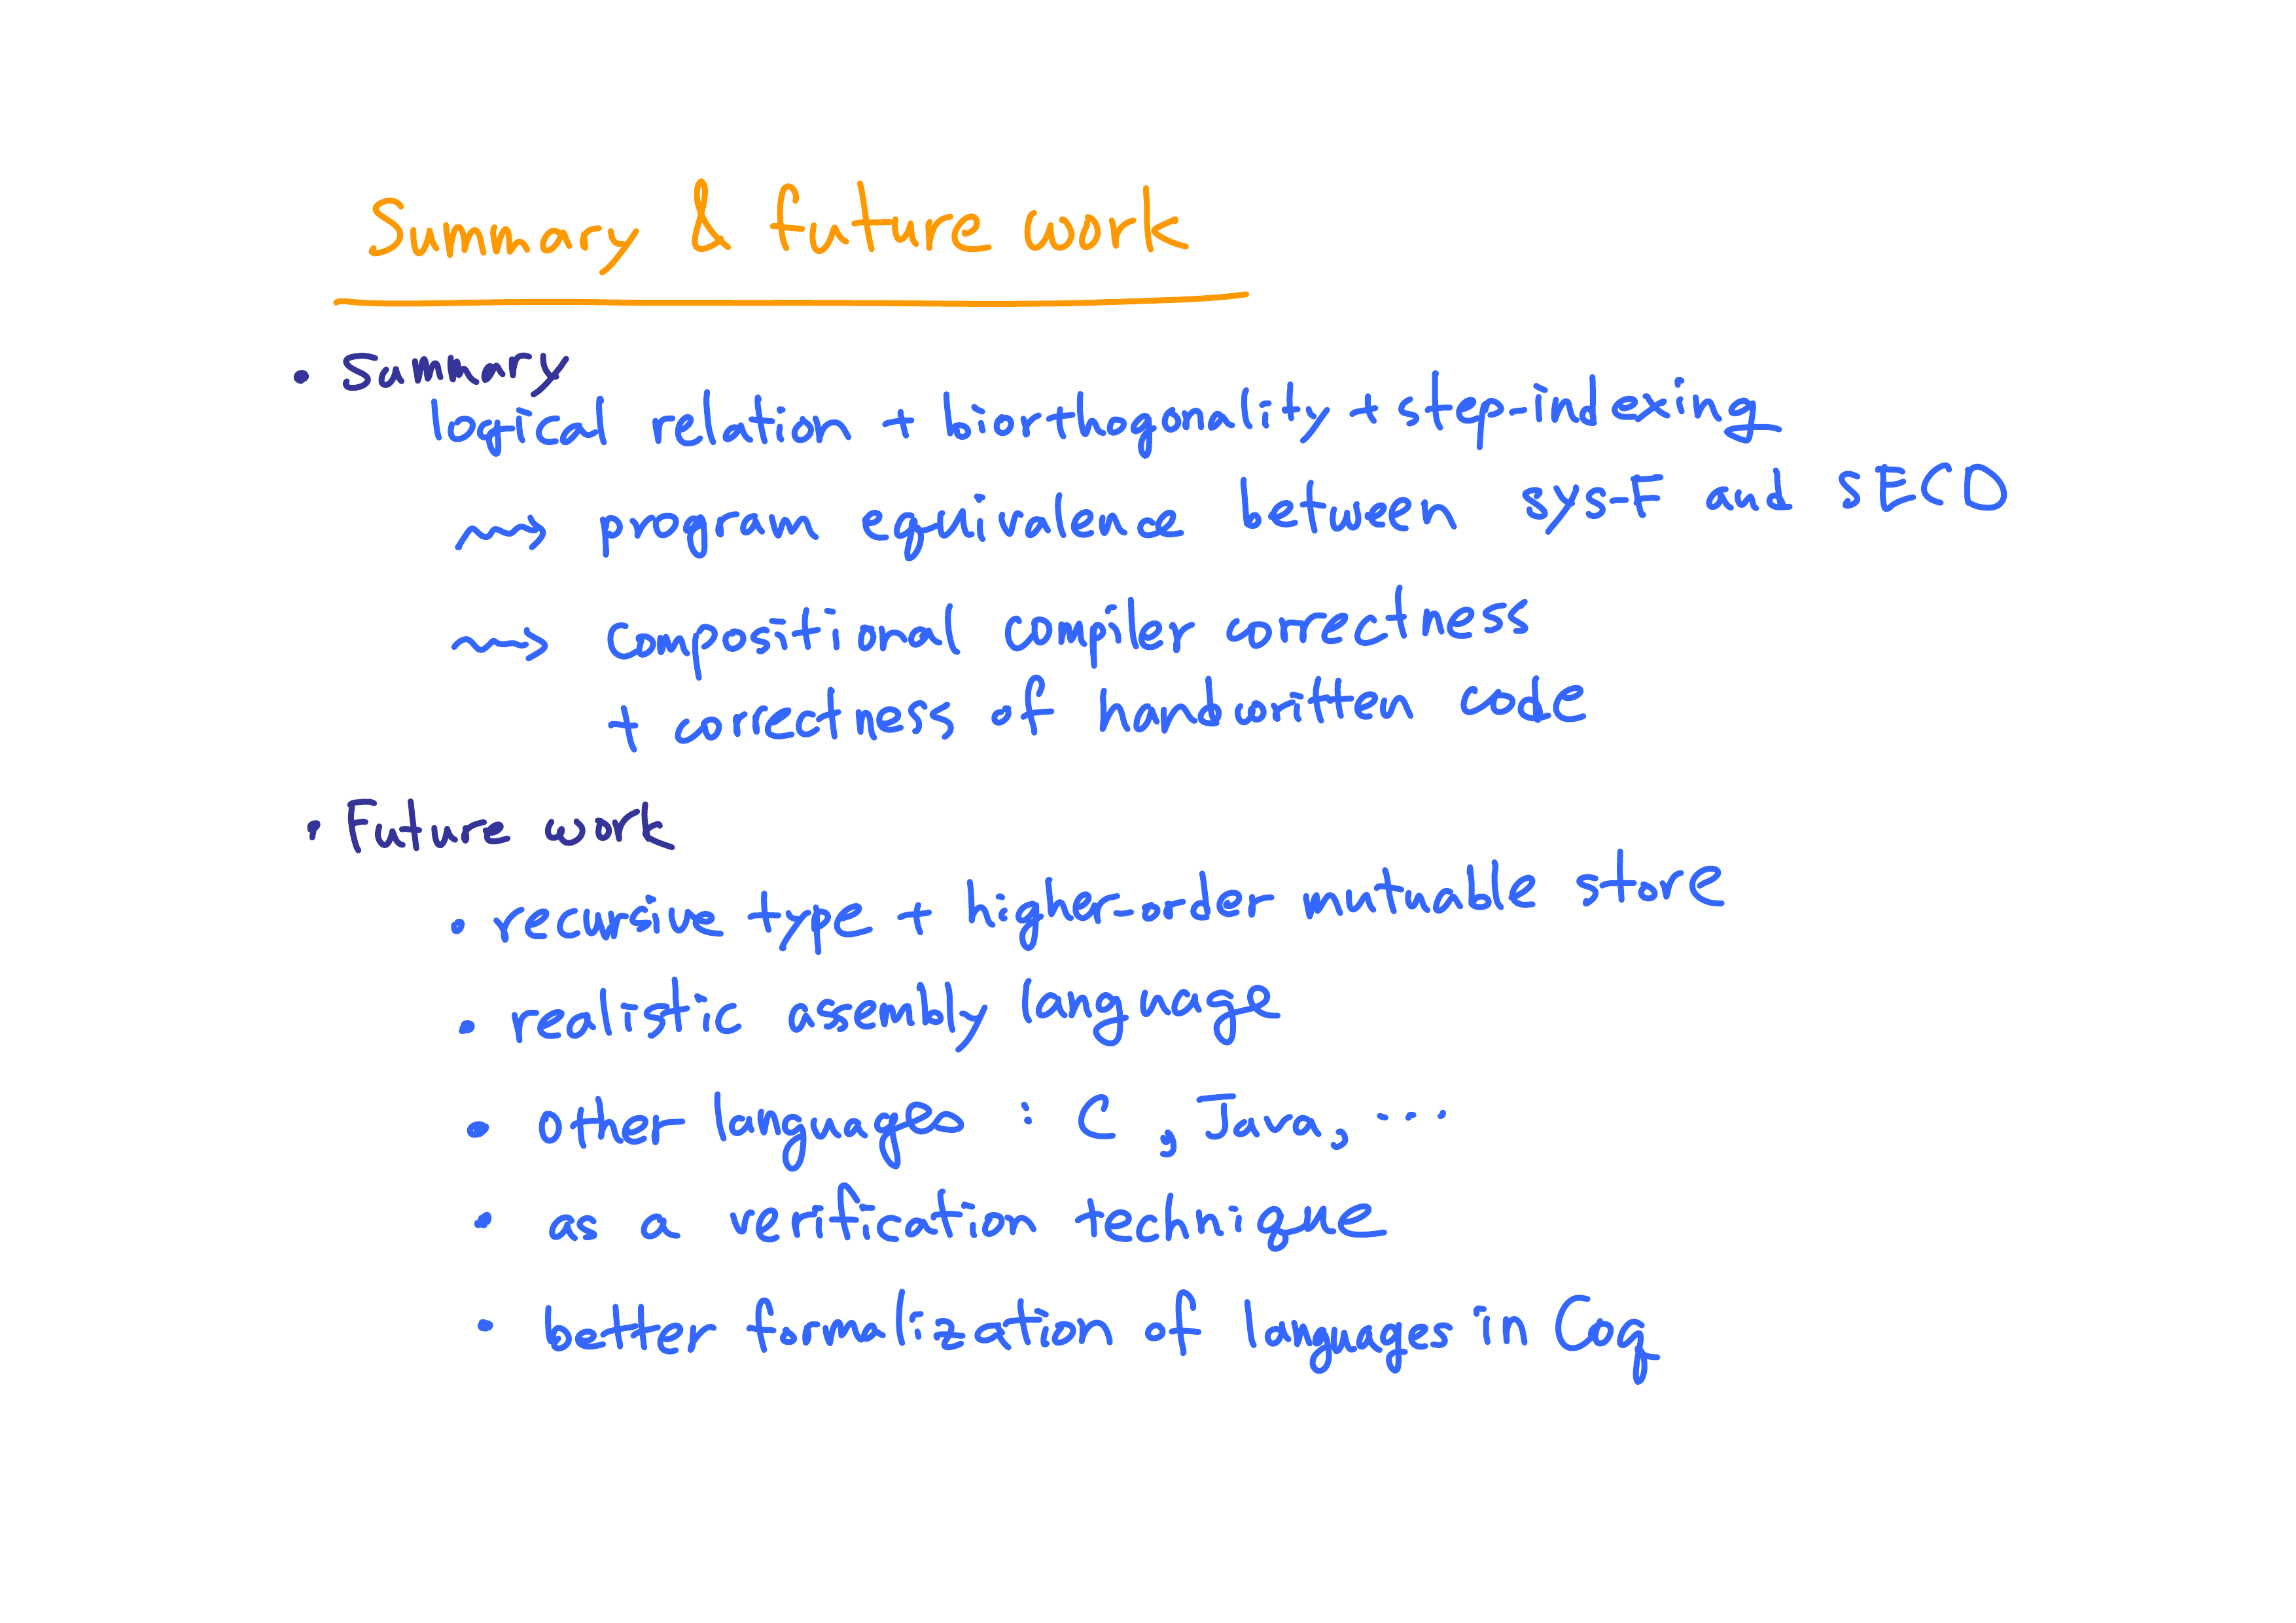 Summary & future work
• Summary
logical relation + biorthogonality + step-indexing
⇝ program equivalence between sys-F and SECD
⇝ compositional compiler correctness
+ correctness of handwritten code
• Future work
• recursive type + higher-order mutable store
• realistic assembly language
• other languages : C , Java, ...
• as a verification technique
• better formalization of languages in Coq